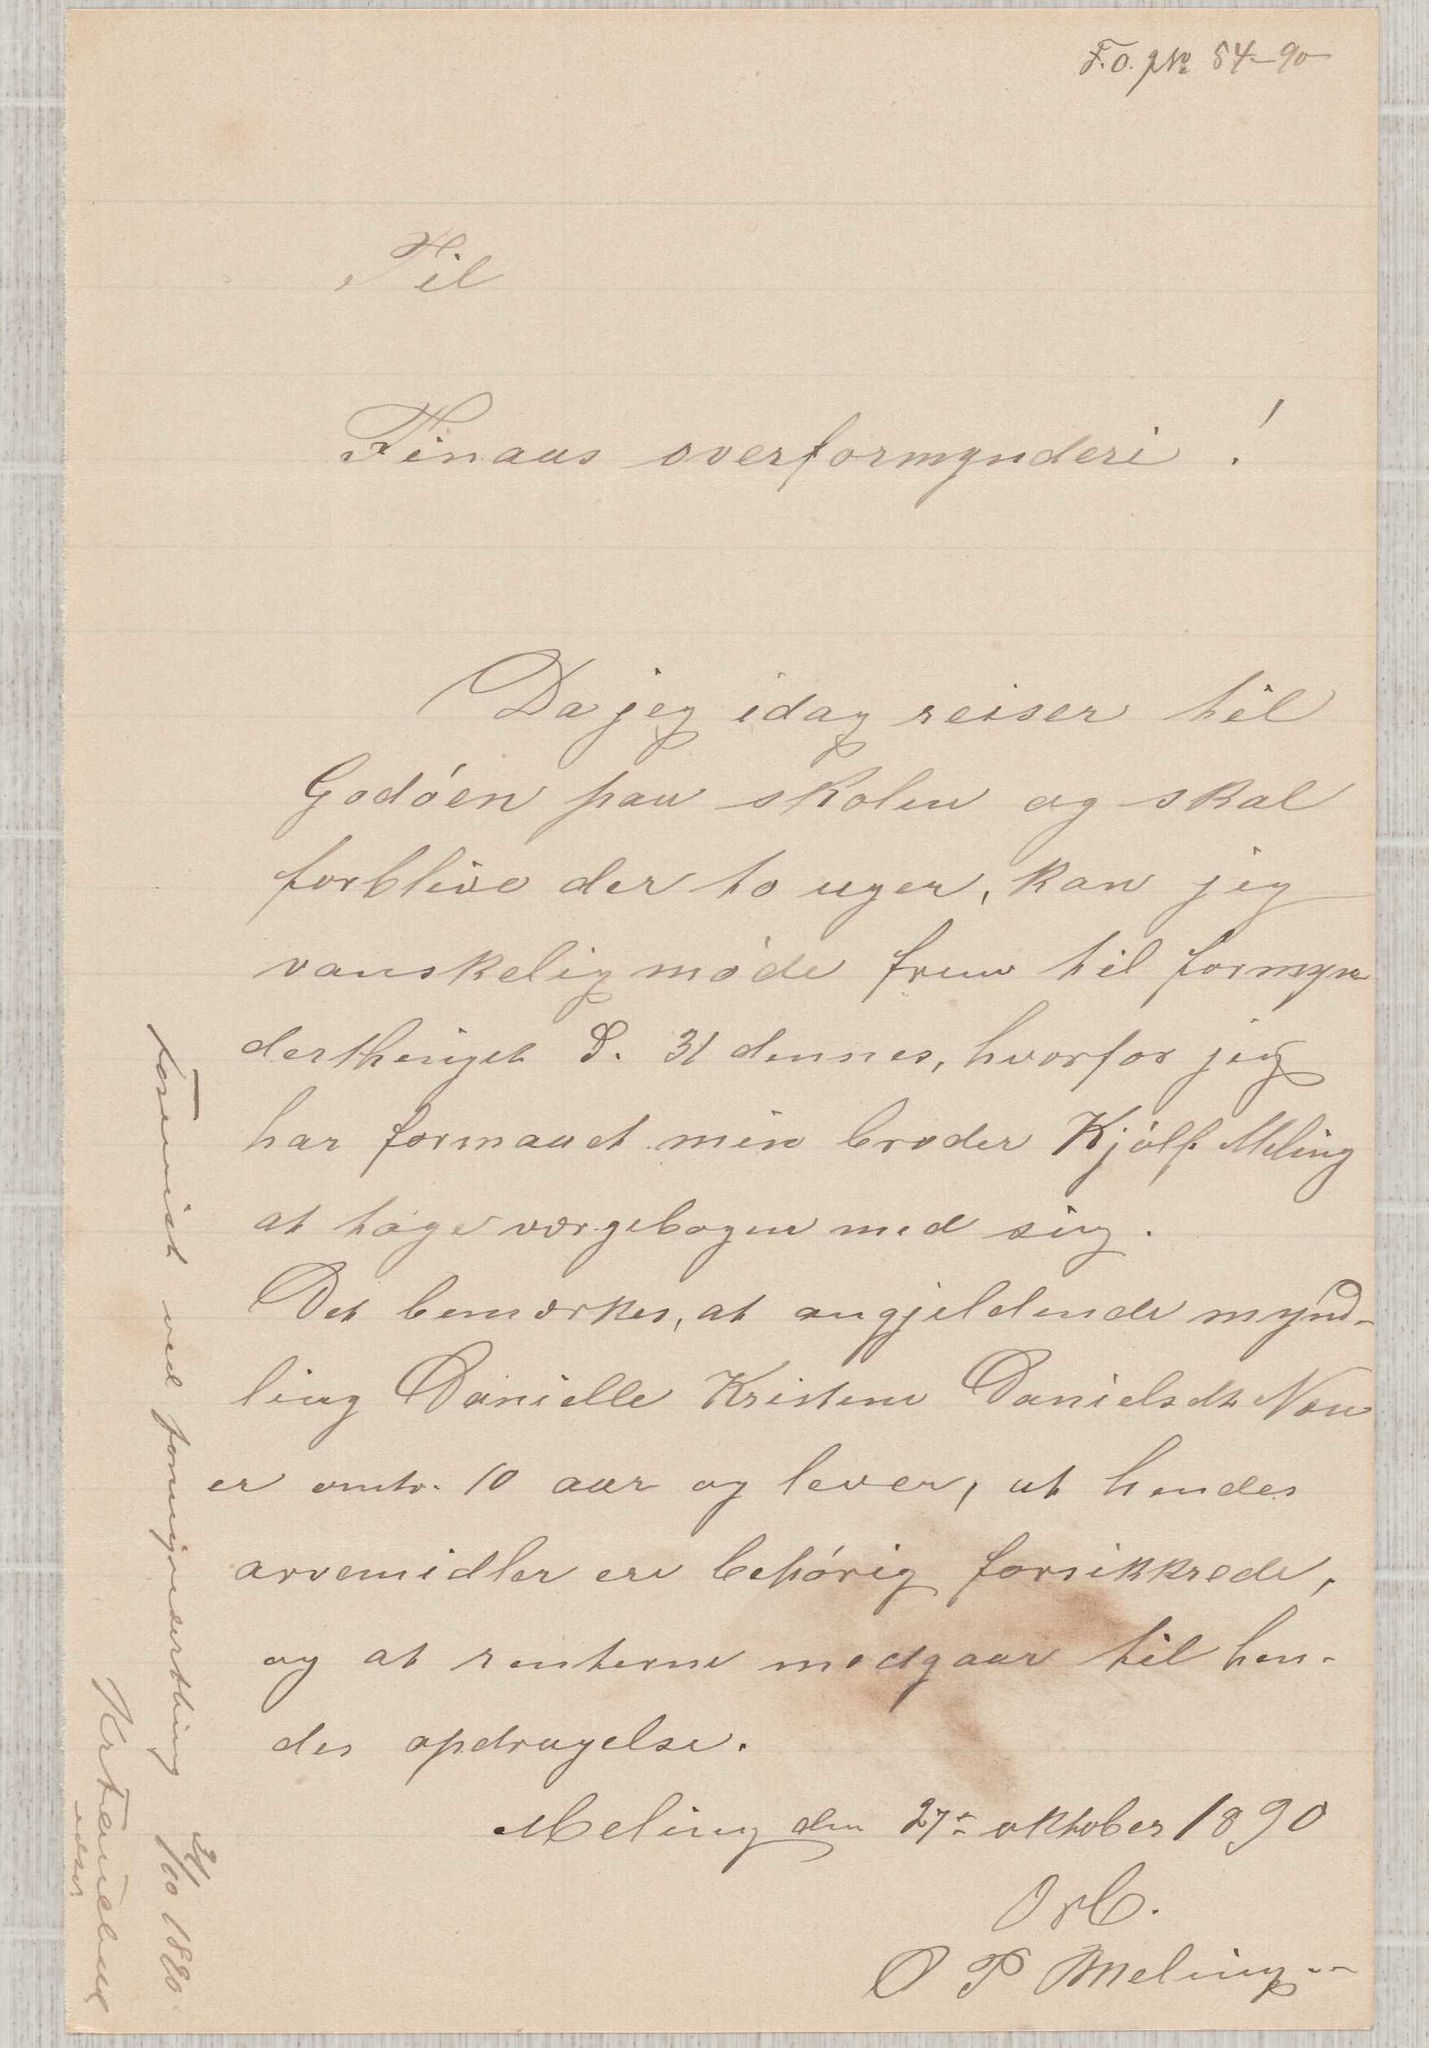 F.O. No 54-90
Til
Finaas overformynderi!
Da jeg idag reiser til
Godóen paa skolen og skal
forblive der to uger, kan jeg
vanskelig móde frem til formyn
derthinget D. 31 dennes, hvorfor jeg
har formaaet min broder Kjólf Meling
at tage værgebogen med sig.
Det bemærkes, at angjeldende mynd-
ling Danielle Kristene Danielsdtr
er omtr. 10 aar og lever, at hendes
arvemidler ere behórig forsikkrede,
og at renterne medgaar til hen-
des opdragelse.
Meling den 27de oktober 1890
Ærb.
O P Meling
Forevist ved formynderthing 31/10 1890.